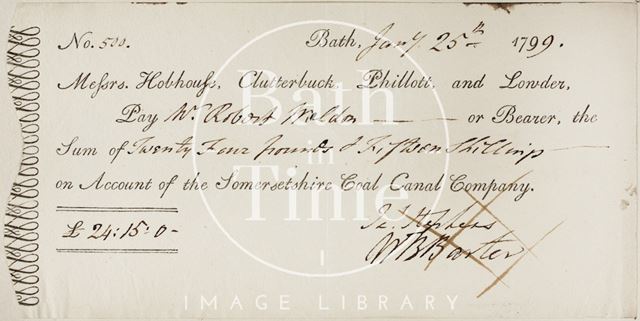 No. 500. Bath, Jany. 25th 1799.
Meſsrs. Hobhouſs, Clutterbuck, Phillott, and Lowder,
Pay Mr. Robert Weldon or Bearer, the
Sum of Twenty Four pounds & Fifteen Shillings
on Account of the Somersetshire Coal Canal Company.
£ 24:15:0-
Stephens
Barter
Bath
in
Time
IMAGE LIBRARY